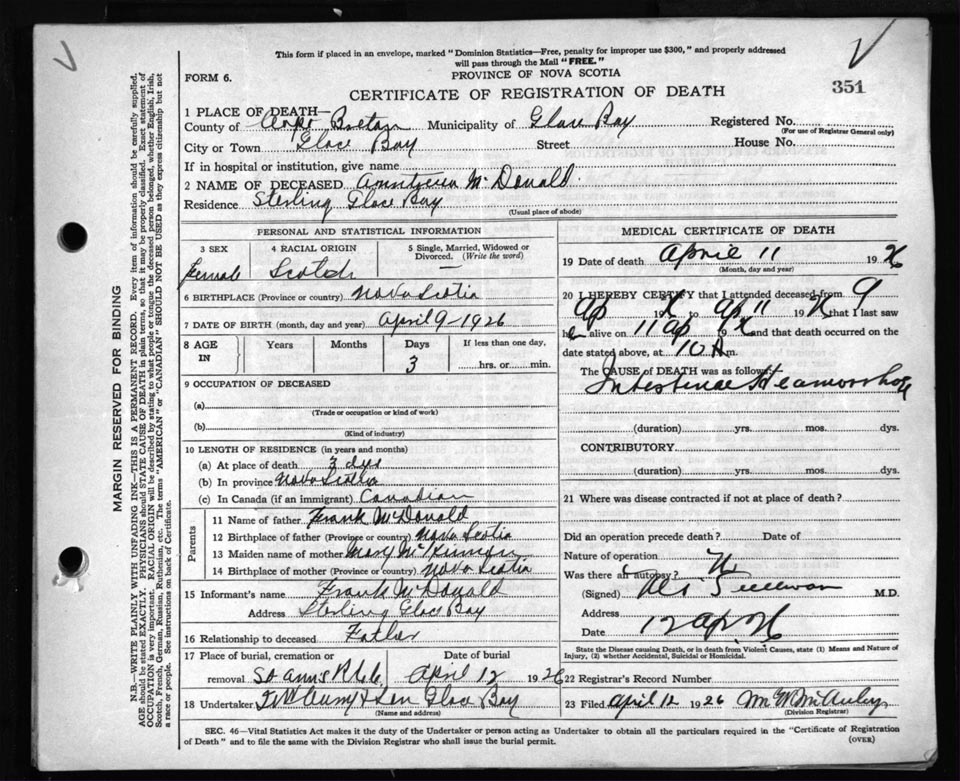 This form if placed in an envelope, marked "Dominion Statistics—Free, penalty for improper use $300," and properly addressed
will pass through the Mail "FREE."
FORM 6.
PROVINCE OF NOVA SCOTIA
CERTIFICATE OF REGISTRATION OF DEATH
351
1 PLACE OF DEATH—
County of Cape Breton Municipality of Glace Bay Registered No.
(For use of Registrar General only)
City or Town Glace Bay Street House No.
If in hospital or institution, give name
2 NAME OF DECEASED McDonald
Residence Sterling Glace Bay
(Usual place of abode)
PERSONAL AND STATISTICAL INFORMATION
3 SEX 4 RACIAL ORIGIN 5 Single, Married, Widowed or Divorced. (Write the word)
female Scotch —
6 BIRTHPLACE (Province or country) Nova Scotia
7 DATE OF BIRTH (month, day and year) April 9-1926
8 AGE IN Years Months Days If less than one day,
3 hrs. or min.
9 OCCUPATION OF DECEASED
(a)
(Trade or occupation or kind of work)
(b)
(Kind of industry)
10 LENGTH OF RESIDENCE (in years and months)
(a) At place of death 3 dys
(b) In province Nova Scotia
(c) In Canada (if an immigrant) Canadian
Parents
11 Name of father Frank McDonald
12 Birthplace of father (Province or country) Nova Scotia
13 Maiden name of mother Mary McKinnon
14 Birthplace of mother (Province or country) Nova Scotia
15 Informant's name Frank McDonald
Address Sterling Glace Bay
16 Relationship to deceased Father
17 Place of burial, cremation or Date of burial
removal St Anns April 12 1926
18 Undertaker Son Glace Bay
(Name and address)
MEDICAL CERTIFICATE OF DEATH
19 Date of death April 11 1926
(Month, day and year)
20 I HEREBY CERTIFY that I attended deceased from 9
Ap 192 to Ap 11 192 that I last saw
h alive on 11 ap 192 and that death occurred on the
date stated above, at 10 A m.
The CAUSE of DEATH was as follows:
Intestinal Heamorrhage
(duration) yrs. mos. dys.
CONTRIBUTORY
(duration) yrs. mos. dys.
21 Where was disease contracted if not at place of death?
Did an operation precede death? Date of
Nature of operation
Was there an autopsy?
(Signed) M.D.
Address
Date 12 ap. 26
State the Disease causing Death, or in death from Violent Causes, state (1) Means and Nature of
Injury, (2) whether Accidental, Suicidal or Homicidal.
22 Registrar's Record Number
23 Filed April 12 1926
(Division Registrar)
SEC. 46—Vital Statistics Act makes it the duty of the Undertaker or person acting as Undertaker to obtain all the particulars required in the "Certificate of Registration
of Death" and to file the same with the Division Registrar who shall issue the burial permit.
(OVER)
MARGIN RESERVED FOR BINDING
N.B.—WRITE PLAINLY WITH UNFADING INK—THIS IS A PERMANENT RECORD. Every item of information should be carefully supplied.
AGE should be stated EXACTLY. PHYSICIANS should STATE CAUSE OF DEATH in plain terms, so that it may be properly classified. Exact statement of
OCCUPATION is very important. RACIAL ORIGIN will be described by stating to what people or tongue the deceased person belonged, whether English, Irish,
Scotch, French, German, Russian, Ruthenian, etc. The terms "AMERICAN" or "CANADIAN" SHOULD NOT BE USED as they express citizenship but not
a race or people. See instructions on back of Certificate.